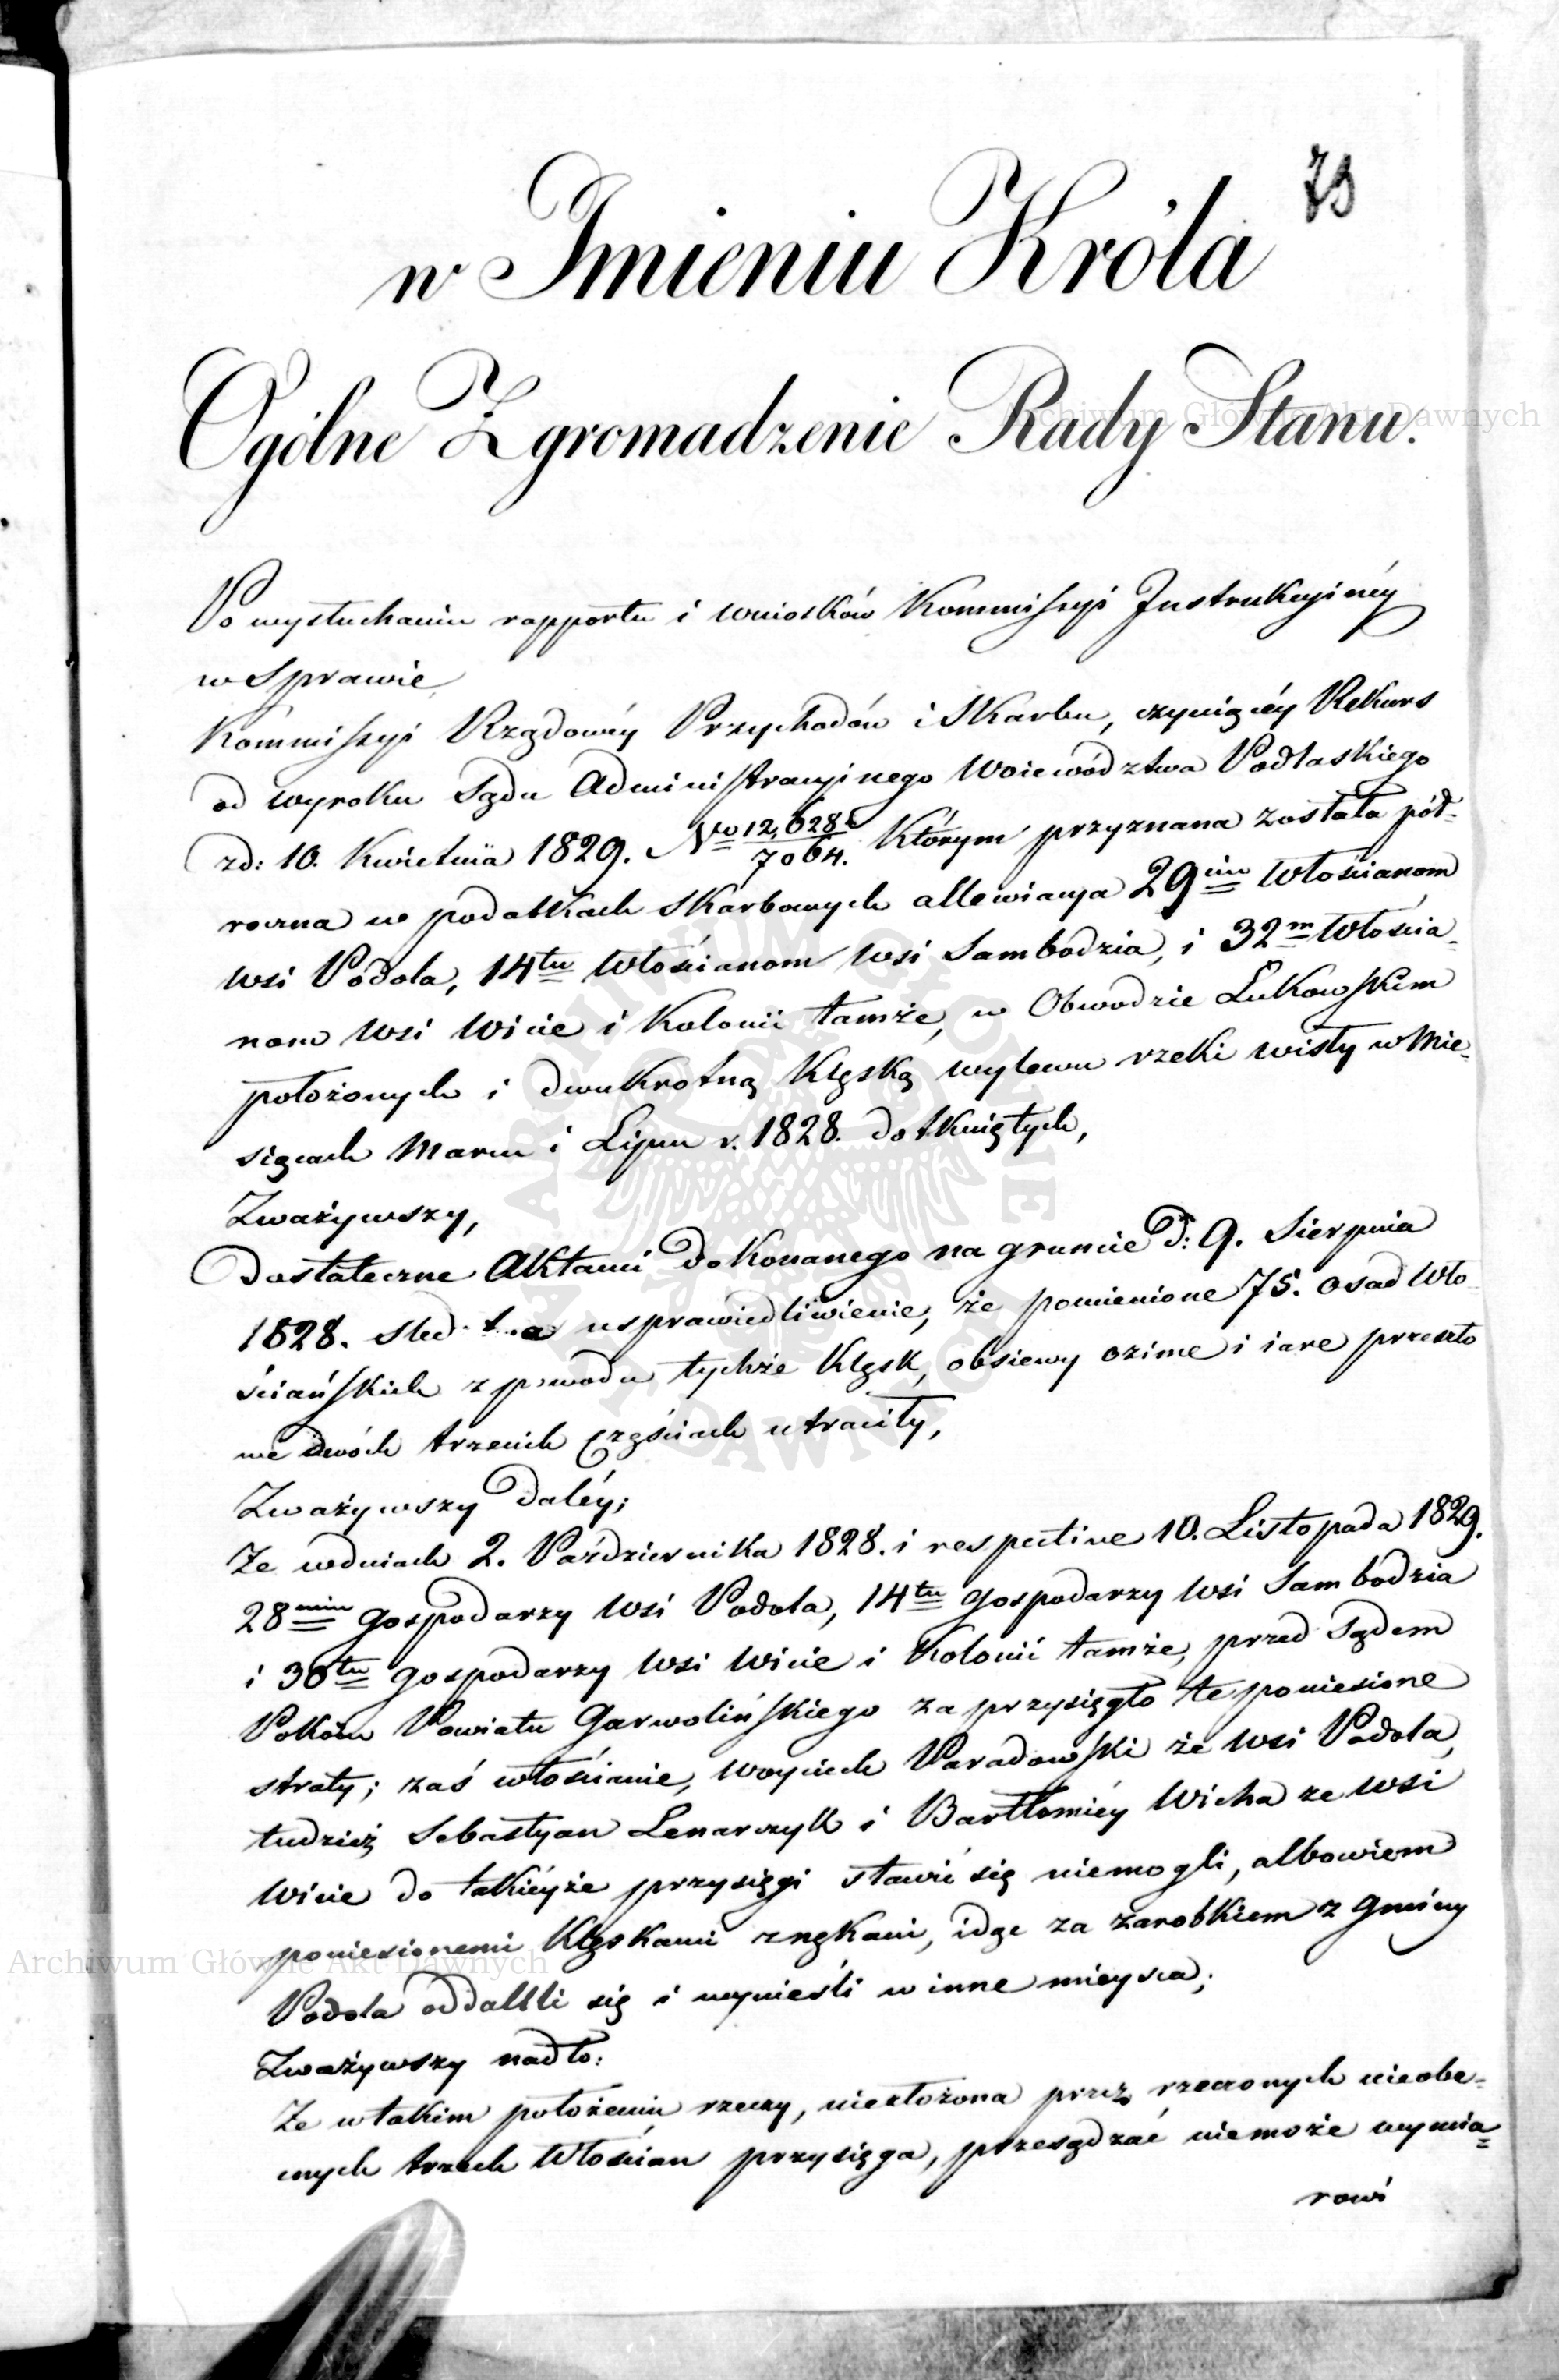 79
w Imieniu Króla
Ogólne Zgromadzenie Rady Stanu.
Po wysłuchaniu rapportu i wniosków Kommissyi Instrukcyinéy
w Sprawie
Kommissyi Rządowéy Przychodów i Skarbu, czyniącéy Rekurs
od wyroku Sądu Administracyinego Woiewództwa Podlaskiego
z d: 10. Kwietnia 1829. No 12,628/7064. Którym przyznana została pół-
roczna w podatkach skarbowych allewiacya 29ciu Włościanom
wsi Podola, 14tu Włościanom wsi Sambodzia, i 32m Włościa-
nom wsi Wicie i Kolonii tamże, w Obwodzie Łukowskim
położonych i dwukrotną Klęską wylewu rzeki Wisły w Mie-
siącach Marcu i Lipcu r. 1828. dotkniętych,
Zważywszy,
Dostateczne Aktami dokonanego na gruncie d: 9. Sierpnia
1828. usprawiedliwienie, że pomienione 75. osad Wło-
ściańskich z powodu tychże Klęsk, obsiewy ozime i iare przeszło
we dwóch trzecich częściach utraciły,
Zważywszy daléy;
Że w dniach 2. Października 1828. i respective 10. Listopada 1829.
28miu gospodarzy wsi Podola, 14tu gospodarzy wsi Sambodzia
i 30tu gospodarzy wsi Wicie i Kolonii tamże, przed Sądem
Pokoiu Powiatu Garwolińskiego zaprzysięgło te poniesione
straty; zaś włościanie, Woyciech Paradowski ze wsi Podola,
tudzież Sebastyan Lenarczyk i Bartłomiéy Wicha ze wsi
Wicie do takiéyże przysięgi stawić się niemogli, albowiem
poniesionemi Klęskami znękani, idąc za zarobkiem z gminy
Podola oddalili się i wynieśli w inne mieysca;
Zważywszy nadto:
Że w takim położeniu rzeczy, niezłożona przez rzeczonych nieobe-
cnych trzech Włościan przysięga, przesądzać niemoże wymia-
rowi
Archiwum Główne Akt Dawnych
Archiwum Główne Akt Dawnych
ARCHIWUM GŁÓWNE AKT DAWNYCH